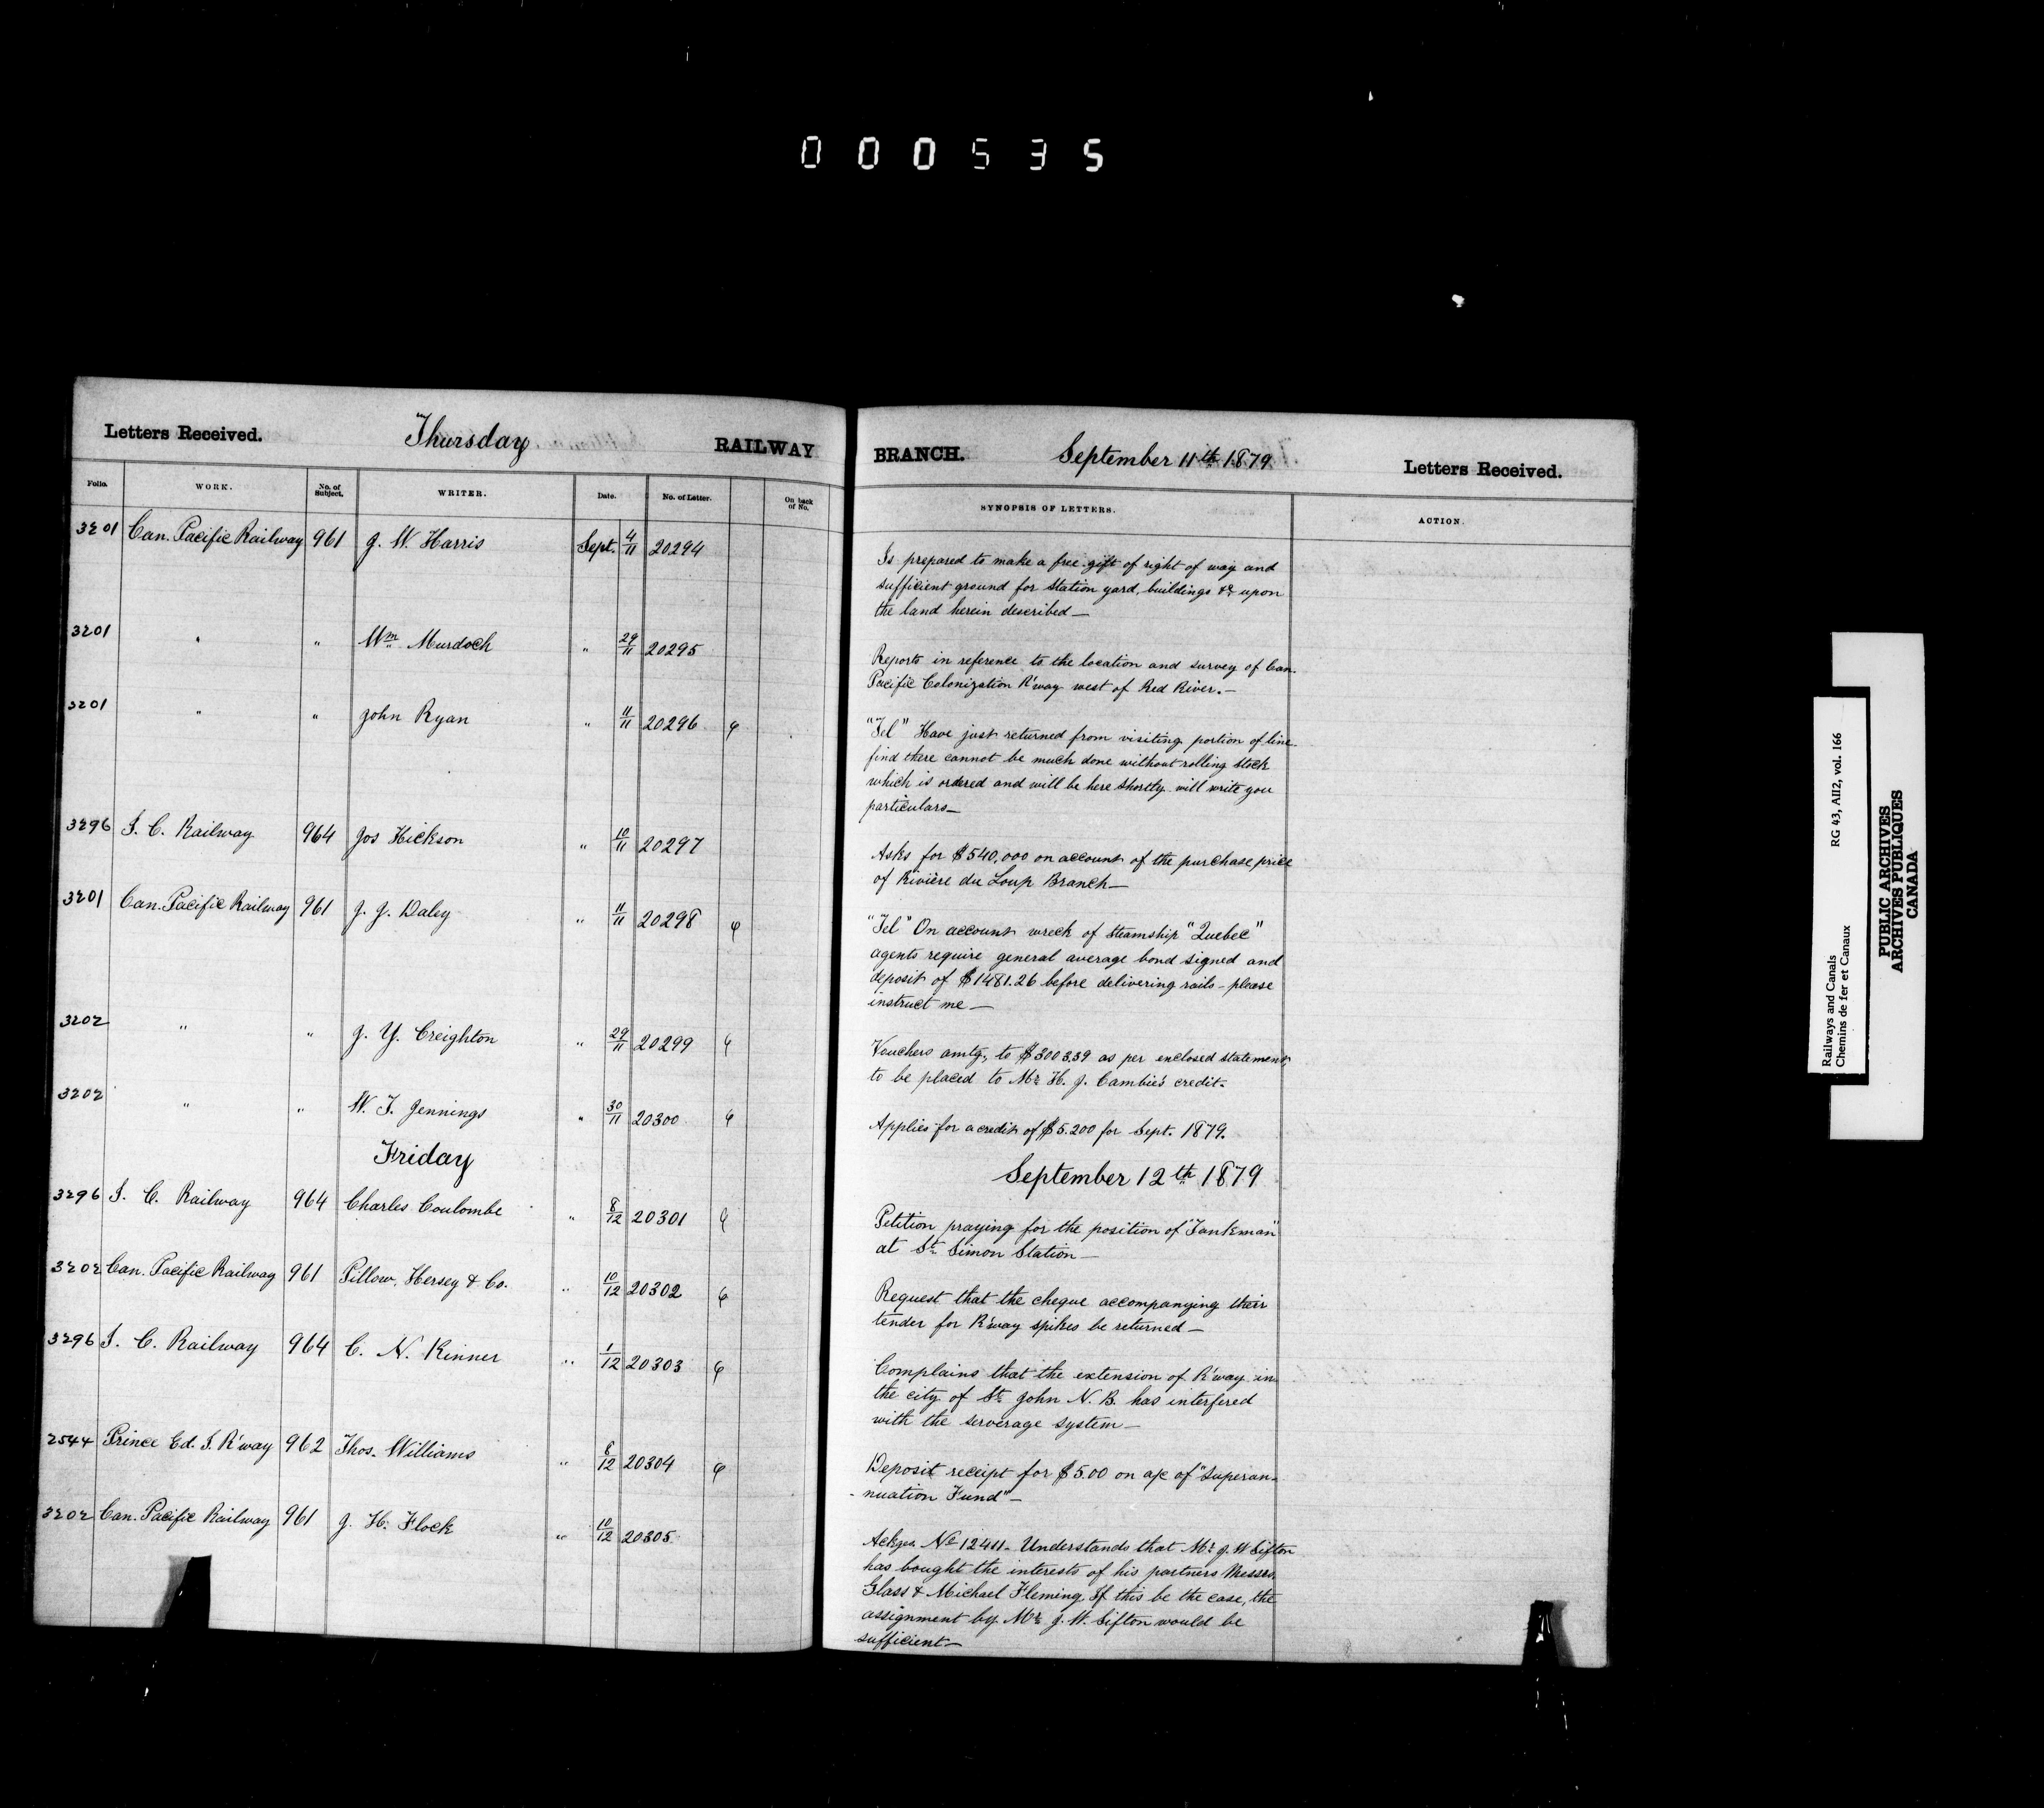 000535
Letters Received. Thursday RAILWAY BRANCH. September 11th 1879 Letters Received.
Folio. WORK. No. of Subject. WRITER. Date. No. of Letter. On back of No. SYNOPSIS OF LETTERS. ACTION.
3201 Can. Pacific Railway 961 J. W. Harris Sept. 4/11 20294
Is prepared to make a free gift of right of way and
sufficient ground for station yard, buildings &c upon
the land herein described—
3201 " " Wm Murdoch " 29/11 20295
Reports in reference to the location and survey of Can.
Pacific Colonization R'way west of Red River.—
3201 " " John Ryan " 11/11 20296
"Tel" Have just returned from visiting portion of line
find there cannot be much done without rolling stock
which is ordered and will be here shortly will write you
particulars—
3296 I. C. Railway 964 Jos Hickson " 10/11 20297
Asks for $540,000 on account of the purchase price
of Rivière du Loup Branch—
3201 Can. Pacific Railway 961 J. J. Daley " 11/11 20298
"Tel" On account wreck of Steamship "Quebec"
agents require general average bond signed and
deposit of $1481.26 before delivering rails - please
instruct me—
3202 " " J. Y. Creighton " 29/11 20299
Vouchers amtg. to $3003.39 as per enclosed statement,
to be placed to Mr H. J. Cambie's credit.
3202 " " W. T. Jennings " 30/11 20300
Applies for a credit of $5.200 for Sept. 1879.
Friday September 12th 1879
3296 I. C. Railway 964 Charles Coulombe " 8/12 20301
Petition praying for the position of "Tankman"
at St. Simon Station—
3202 Can. Pacific Railway 961 Pillow, Hersey & Co. " 10/12 20302
Request that the cheque accompanying their
tender for R'way spikes be returned—
3296 I. C. Railway 964 C. N. Kinner " 1/12 20303
Complains that the extension of R'way in
the city of St. John N. B. has interfered
with the serverage system—
2544 Prince Ed. I. R'way 962 Thos. Williams " 8/12 20304
Deposit receipt for $5.00 on a/c of "Superan-
-nuation Fund"—
3202 Can. Pacific Railway 961 J. H. Flock " 10/12 20305
No 12411. Understands that Mr J. W Sifton
has bought the interests of his partners Messrs.
Glass & Michael Fleming. If this be the case, the
assignment by Mr J. W. Sifton would be
sufficient—
Railways and Canals RG 43, AII2, vol. 166
Chemins de fer et Canaux
PUBLIC ARCHIVES
ARCHIVES PUBLIQUES
CANADA